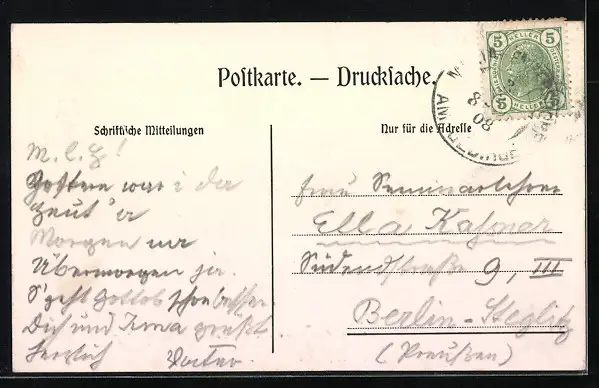 Postkarte. — Drucksache.
Schriftliche Mitteilungen
Nur für die Adresse
5 HELLER 5
M. l. E!
Gestern war i da
Heut' a
Morgen nur
Übermorgen ja.
S'geht Gottlob schon besser
Dich und Irma grüßt
herzlich
Frau Seminarlehrer
Ella Kafner
Südendstraße 9, III
Berlin-Steglitz
(Preußen)
8 08